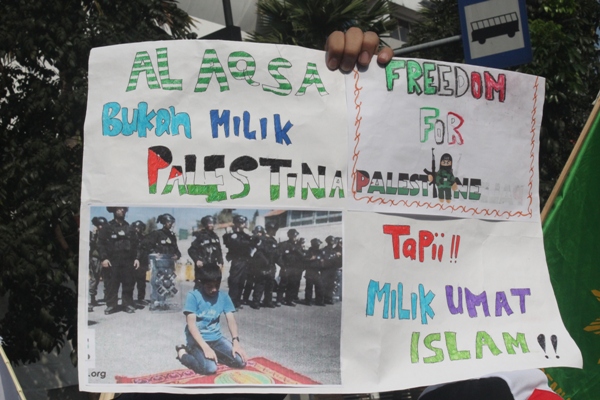 AL AQSA
Bukan MILIK
PALESTINA
FREEDOM
FOR
PALESTINE
TaPii !!
MILIK UMAT
ISLAM !!
.org